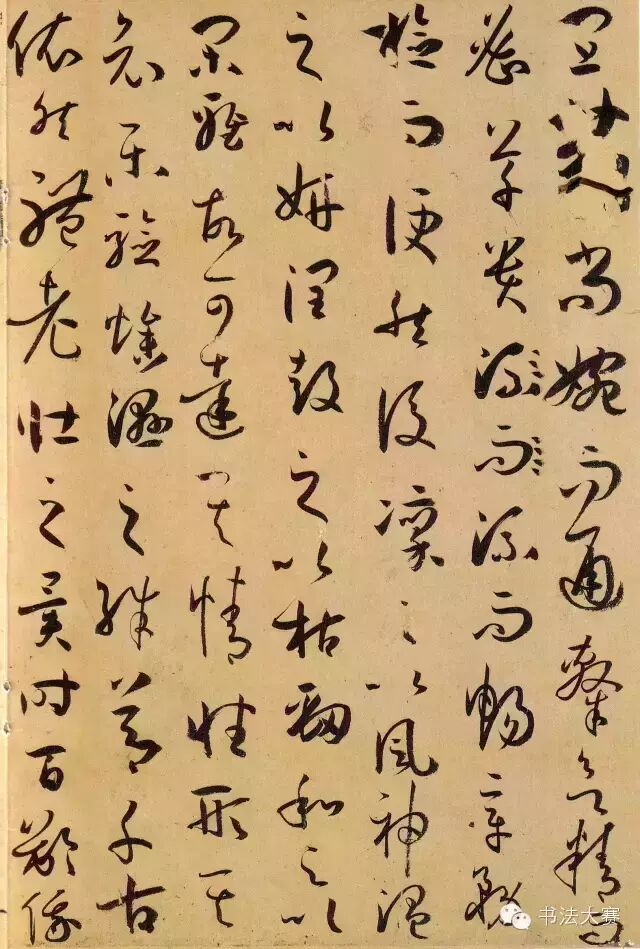 宜篆尚婉而通隸欲精而
密草貴流而流而暢章務
檢而便然後凜之以風神溫
之以妍潤鼓之以枯勁和之以
閑雅故可達其情性形其
哀樂驗燥濕之殊節千古
依然體老壯之異時百齡俄
书法大赛